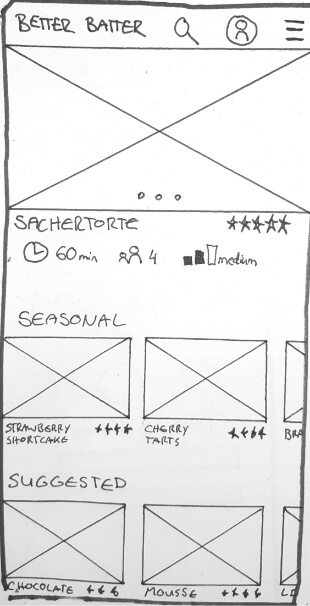 BETTER BATTER
SACHERTORTE
60min 4 medium
SEASONAL
STRAWBERRY
SHORTCAKE
CHERRY
TARTS
BRA
SUGGESTED
CHOCOLATE
MOUSSE